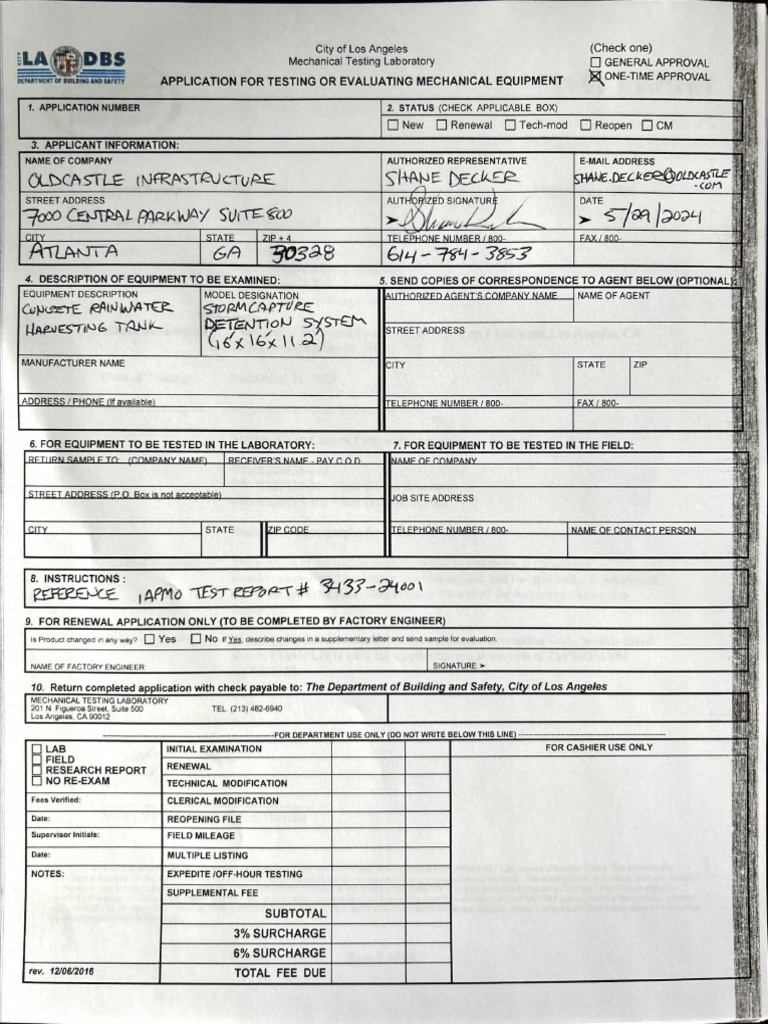 CITY LA DBS
DEPARTMENT OF BUILDING AND SAFETY
City of Los Angeles
Mechanical Testing Laboratory
APPLICATION FOR TESTING OR EVALUATING MECHANICAL EQUIPMENT
(Check one)
GENERAL APPROVAL
ONE-TIME APPROVAL
1. APPLICATION NUMBER
2. STATUS (CHECK APPLICABLE BOX)
New Renewal Tech-mod Reopen CM
3. APPLICANT INFORMATION:
NAME OF COMPANY AUTHORIZED REPRESENTATIVE E-MAIL ADDRESS
OLDCASTLE INFRASTRUCTURE SHANE DECKER SHANE.DECKER@OLDCASTLE
.COM
STREET ADDRESS AUTHORIZED SIGNATURE DATE
7000 CENTRAL PARKWAY SUITE 800 5/29/2024
CITY STATE ZIP + 4 TELEPHONE NUMBER / 800- FAX / 800-
ATLANTA GA 30328 614-784-3853
4. DESCRIPTION OF EQUIPMENT TO BE EXAMINED: 5. SEND COPIES OF CORRESPONDENCE TO AGENT BELOW (OPTIONAL):
EQUIPMENT DESCRIPTION MODEL DESIGNATION AUTHORIZED AGENT'S COMPANY NAME NAME OF AGENT
CONCRETE RAINWATER STORMCAPTURE
HARVESTING TANK DETENTION SYSTEM
(16'x16'x11.2')
STREET ADDRESS
MANUFACTURER NAME CITY STATE ZIP
ADDRESS / PHONE (If available) TELEPHONE NUMBER / 800- FAX / 800-
6. FOR EQUIPMENT TO BE TESTED IN THE LABORATORY: 7. FOR EQUIPMENT TO BE TESTED IN THE FIELD:
RETURN SAMPLE TO: (COMPANY NAME) RECEIVER'S NAME - PAY C.O.D. NAME OF COMPANY
STREET ADDRESS (P.O. Box is not acceptable) JOB SITE ADDRESS
CITY STATE ZIP CODE TELEPHONE NUMBER / 800- NAME OF CONTACT PERSON
8. INSTRUCTIONS :
REFERENCE IAPMO TEST REPORT # 3433-24001
9. FOR RENEWAL APPLICATION ONLY (TO BE COMPLETED BY FACTORY ENGINEER)
Is Product changed in any way? Yes No If Yes, describe changes in a supplementary letter and send sample for evaluation.
NAME OF FACTORY ENGINEER SIGNATURE:
10. Return completed application with check payable to: The Department of Building and Safety, City of Los Angeles
MECHANICAL TESTING LABORATORY
201 N. Figueroa Street, Suite 500 TEL (213) 482-6940
Los Angeles, CA 90012
FOR DEPARTMENT USE ONLY (DO NOT WRITE BELOW THIS LINE)
LAB INITIAL EXAMINATION FOR CASHIER USE ONLY
FIELD
RESEARCH REPORT RENEWAL
NO RE-EXAM TECHNICAL MODIFICATION
Fees Verified: CLERICAL MODIFICATION
Date: REOPENING FILE
Supervisor Initials: FIELD MILEAGE
Date: MULTIPLE LISTING
NOTES: EXPEDITE /OFF-HOUR TESTING
SUPPLEMENTAL FEE
SUBTOTAL
3% SURCHARGE
6% SURCHARGE
rev. 12/06/2016 TOTAL FEE DUE